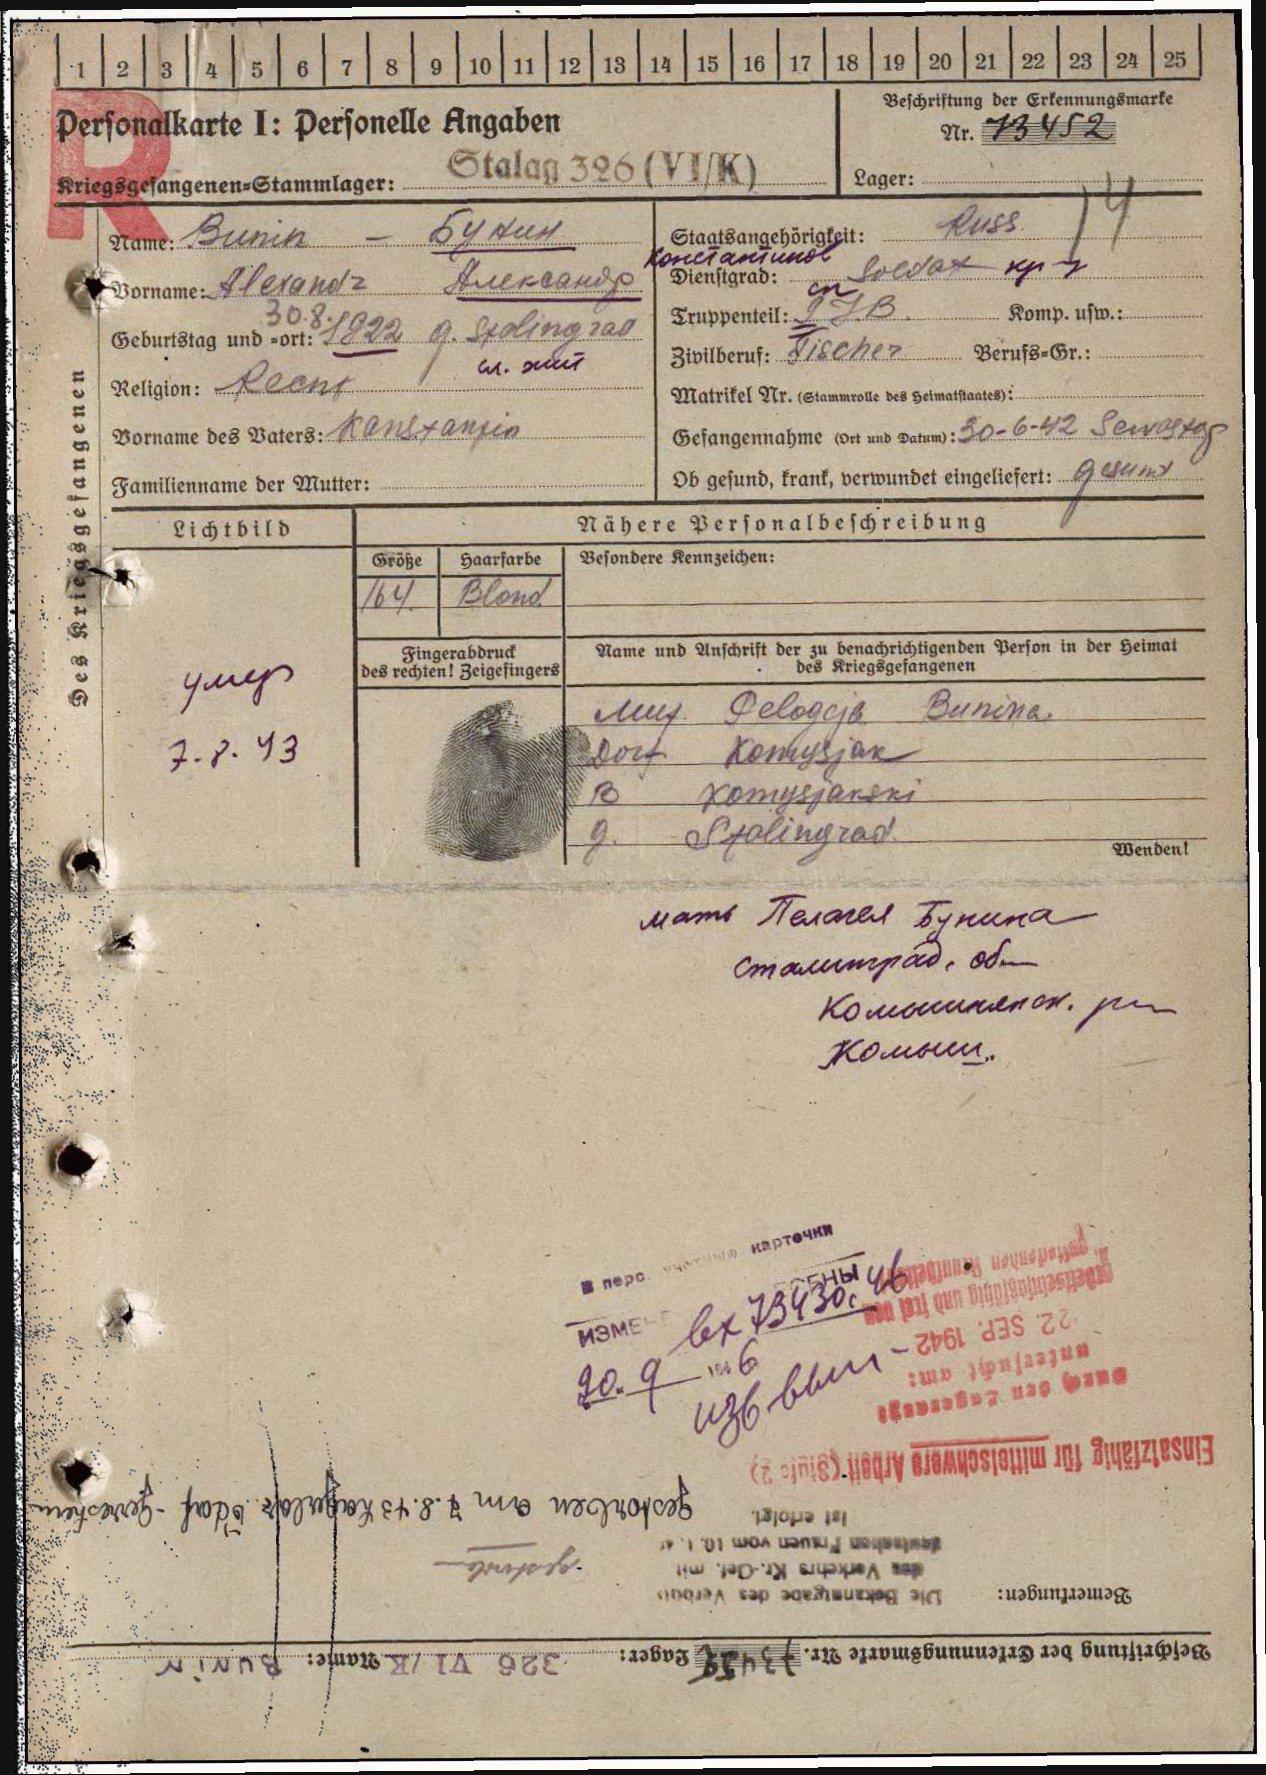 1 2 3 4 5 6 7 8 9 10 11 12 13 14 15 16 17 18 19 20 21 22 23 24 25
R
Personalkarte I: Personelle Angaben
Beschriftung der Erkennungsmarke
Nr. 73452
Kriegsgefangenen=Stammlager: Stalag 326 (VI/K)
Lager:
Des Kriegsgefangenen
Name: Bunin – Бунин
Vorname: Alexandr Александр
Константинов
Geburtstag und =ort: 30.8. 1922 g. Stalingrad
Religion:
Vorname des Vaters: Konstantin
Familienname der Mutter:
Staatsangehörigkeit: Russ.
Dienstgrad: Soldat кр-ц
Truppenteil: Komp. usw.:
Zivilberuf: Fischer Berufs=Gr.:
Matrikel Nr. (Stammrolle des Heimatstaates):
Gefangennahme (Ort und Datum): 30-6-42 Sewastop
Ob gesund, krank, verwundet eingeliefert: gesund
Lichtbild
Nähere Personalbeschreibung
Größe Haarfarbe Besondere Kennzeichen:
164. Blond
Fingerabdruck
des rechten! Zeigefingers
Name und Anschrift der zu benachrichtigenden Person in der Heimat
des Kriegsgefangenen
умер
7.8.43
Mut Pelogeja Bunina.
Dorf Komysjak
R Komysjakski
g. Stalingrad
Wenden!
мать Пелагея Бунина
Сталинград. об
р
В перс. учетные карточки
ИЗМЕНЕ ЕСЕНЫ
вх 73430с 46
20. 9 1946
изв выс
arbeitseinsatzfähig und frei von
22. SEP. 1942
untersucht am:
Durch den Lagerarzt
Einsatzfähig für mittelschwere Arbeit (Stufe 2)
gestorben am 7.8.43 Lazarlaz. Ddorf-Gerresheim
gestorben
Bemerkungen:
Die Bekanntgabe des Verbots
des Verkehrs Kr.-Gef. mit
deutschen Frauen vom 10.1.
ist erfolgt.
Beschriftung der Erkennungsmarke Nr. 73452 Lager: 326 VI/K Name: BUNIN